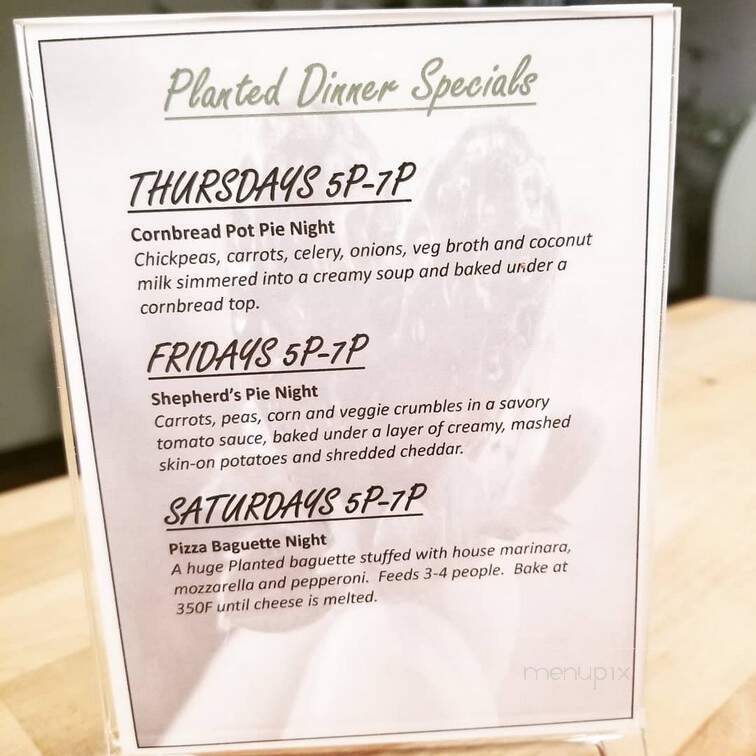 Planted Dinner Specials
THURSDAYS 5P-7P
Cornbread Pot Pie Night
Chickpeas, carrots, celery, onions, veg broth and coconut
milk simmered into a creamy soup and baked under a
cornbread top.
FRIDAYS 5P-7P
Shepherd's Pie Night
Carrots, peas, corn and veggie crumbles in a savory
tomato sauce, baked under a layer of creamy, mashed
skin-on potatoes and shredded cheddar.
SATURDAYS 5P-7P
Pizza Baguette Night
A huge Planted baguette stuffed with house marinara,
mozzarella and pepperoni. Feeds 3-4 people. Bake at
350F until cheese is melted.
menupix